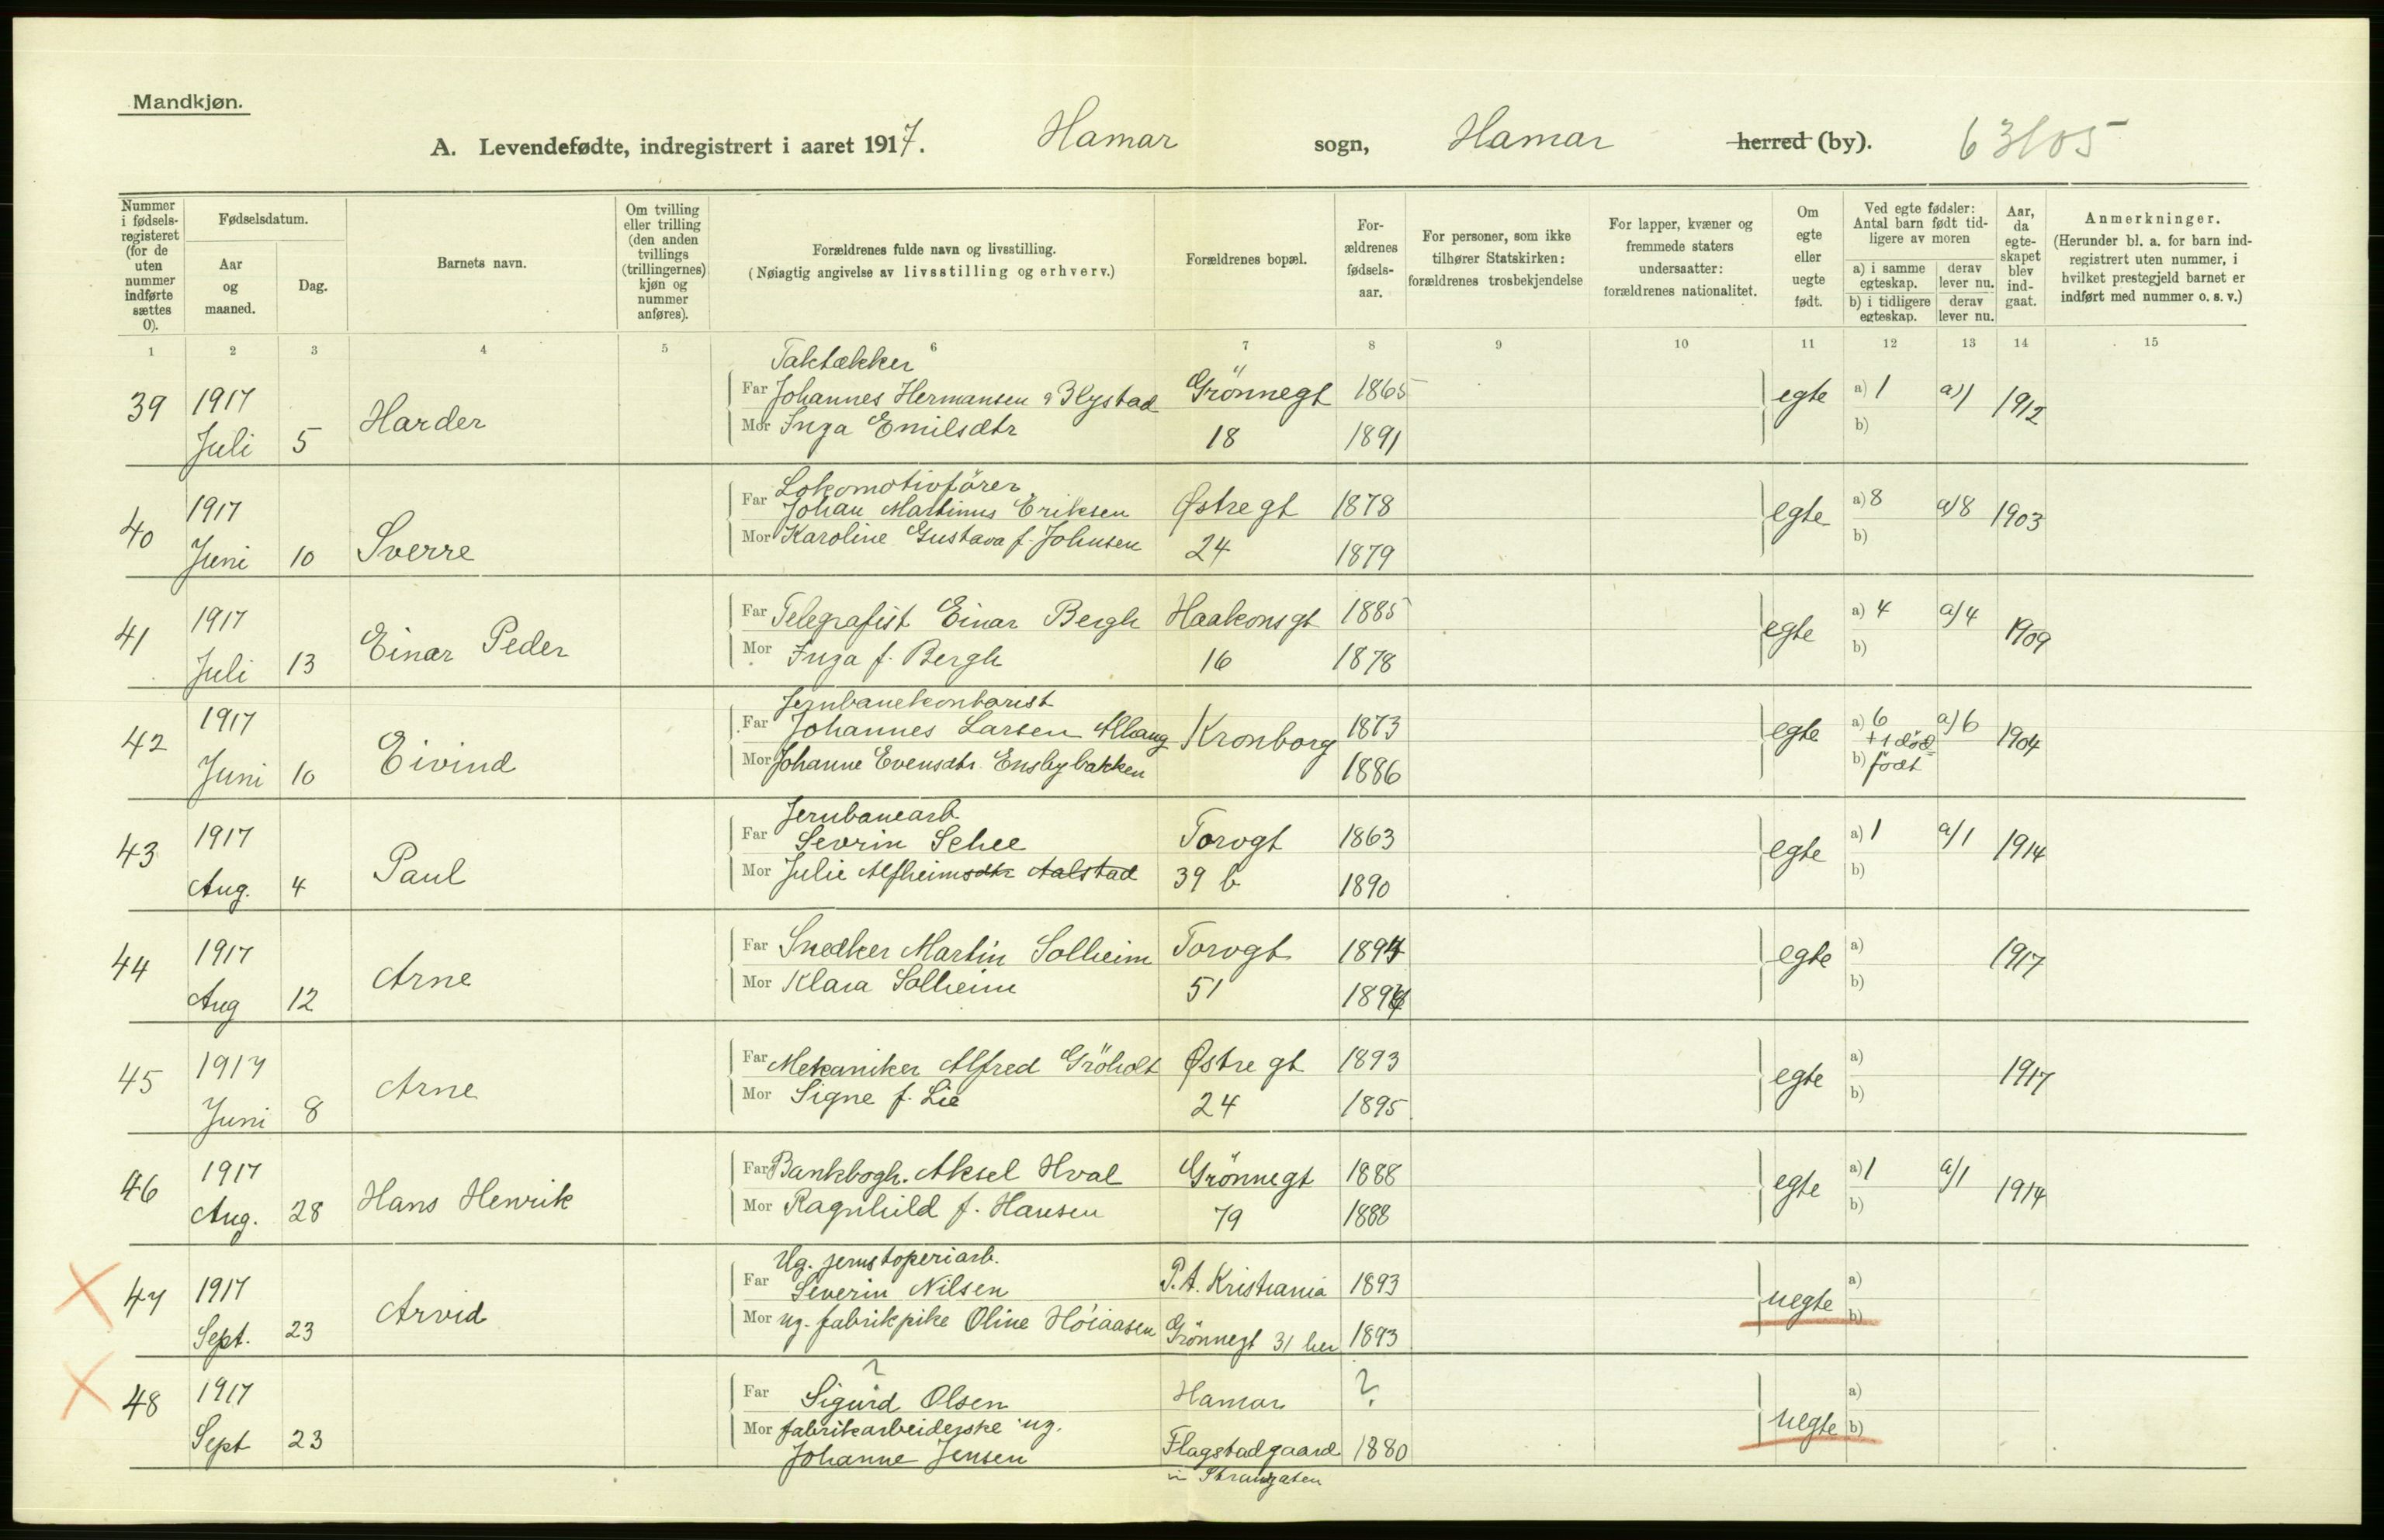 Mandkjøn.
A. Levendefødte, indregistrert i aaret 1917. Hamar sogn, Hamar herred (by). 63/05
Nummer i fødselsregisteret (for de uten nummer indførte sættes 0).
Fødselsdatum.
Aar og maaned.
Dag.
Barnets navn.
Om tvilling eller trilling (den anden tvillings (trillingernes) kjøn og nummer anføres).
Forældrenes fulde navn og livsstilling.
(Nøiagtig angivelse av livsstilling og erhverv.)
Forældrenes bopæl.
Forældrenes fødselsaar.
For personer, som ikke tilhører Statskirken: forældrenes trosbekjendelse
For lapper, kvæner og fremmede staters undersaatter: forældrenes nationalitet.
Om egte eller uegte født.
Ved egte fødsler: Antal barn født tidligere av moren
a) i samme egteskap.
derav lever nu.
b) i tidligere egteskap.
derav lever nu.
Aar, da egteskapet blev indgaat.
Anmerkninger.
(Herunder bl. a. for barn indregistrert uten nummer, i hvilket prestegjeld barnet er indført med nummer o. s. v.)
1 2 3 4 5 6 7 8 9 10 11 12 13 14 15
Taktækker
39 1917 Far Johannes Hermansen Grönnegt 1865 egte a) 1 a)1 1912
Juli 5 Harder Mor Inga Emilsdtr 18 1891 b)
Lokomotivförer
40 1917 Far Johan Martinus Eriksen Østregt 1878 egte a) 8 a)8 1903
Juni 10 Sverre Mor Karoline Gustava f. Johnsen 24 1879 b)
41 1917 Far Telegrafist Einar Bergh Haakonsgt 1885 egte a) 4 a)4 1909
Juli 13 Einar Peder Mor Inga f. Bergh 16 1878 b)
Jernbanekontorist
42 1917 Far Johannes Larsen Kronborg 1873 egte a) 6 a)6 1904
+1 död
Juni 10 Eivind Mor Johanne Evensdtr Ensbybakken 1886 b) født
Jernbanearb
43 1917 Far Severin Schee Torvgt 1863 egte a) 1 a)1 1914
Aug. 4 Paul Mor Julie Alfheimsdtr Aalstad 39 b 1890 b)
44 1917 Far Snedker Martin Solheim Torvgt 1894 egte a) 1917
Aug 12 Arne Mor Klara Solheim 51 1894 b)
45 1917 Far Mekaniker Alfred Gröholt Østre gt 1893 egte a) 1917
Juni 8 Arne Mor Signe f. Lie 24 1895 b)
46 1917 Far Bankbogh. Aksel Hval Grönnegt 1888 egte a) 1 a)1 1914
Aug. 28 Hans Henrik Mor Ragnhild f. Hansen 79 1888 b)
Ug. jernstøperiarb.
47 1917 Far Severin Nilsen P.t. Kristiania 1893 uegte a)
Sept. 23 Arvid Mor ug. fabrikpike Oline Höiaasen Grönnegt 31 her 1893 b)
?
48 1917 Far Sigurd Olsen Hamar ? uegte a)
Mor fabrikarbeiderske ug. b)
Sept 23 Johanne Jensen Flagstadgaard 1880
i Strandgaten